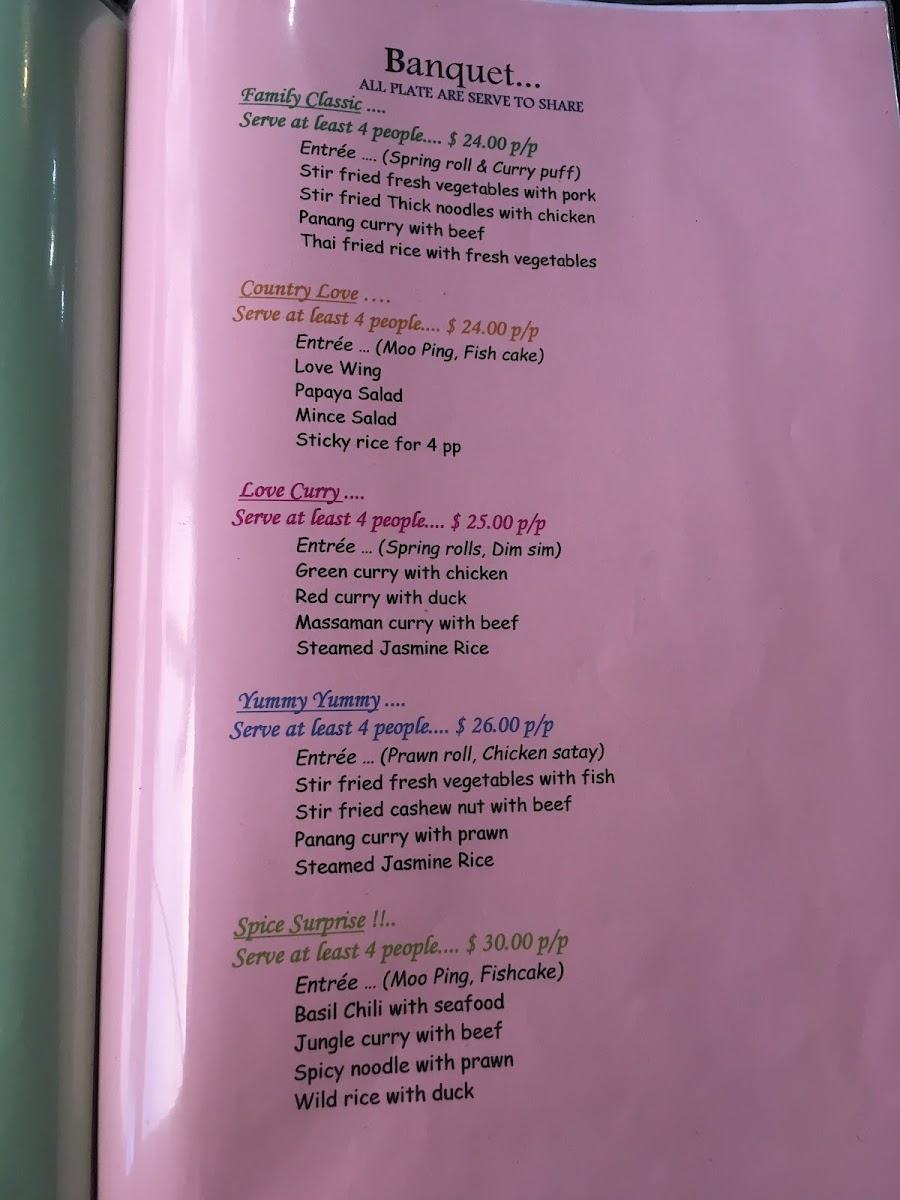 Banquet...
ALL PLATE ARE SERVE TO SHARE
Family Classic ....
Serve at least 4 people.... $ 24.00 p/p
Entrée .... (Spring roll & Curry puff)
Stir fried fresh vegetables with pork
Stir fried Thick noodles with chicken
Panang curry with beef
Thai fried rice with fresh vegetables
Country Love ....
Serve at least 4 people.... $ 24.00 p/p
Entrée ... (Moo Ping, Fish cake)
Love Wing
Papaya Salad
Mince Salad
Sticky rice for 4 pp
Love Curry ....
Serve at least 4 people.... $ 25.00 p/p
Entrée ... (Spring rolls, Dim sim)
Green curry with chicken
Red curry with duck
Massaman curry with beef
Steamed Jasmine Rice
Yummy Yummy ....
Serve at least 4 people.... $ 26.00 p/p
Entrée ... (Prawn roll, Chicken satay)
Stir fried fresh vegetables with fish
Stir fried cashew nut with beef
Panang curry with prawn
Steamed Jasmine Rice
Spice Surprise !!..
Serve at least 4 people.... $ 30.00 p/p
Entrée ... (Moo Ping, Fishcake)
Basil Chili with seafood
Jungle curry with beef
Spicy noodle with prawn
Wild rice with duck